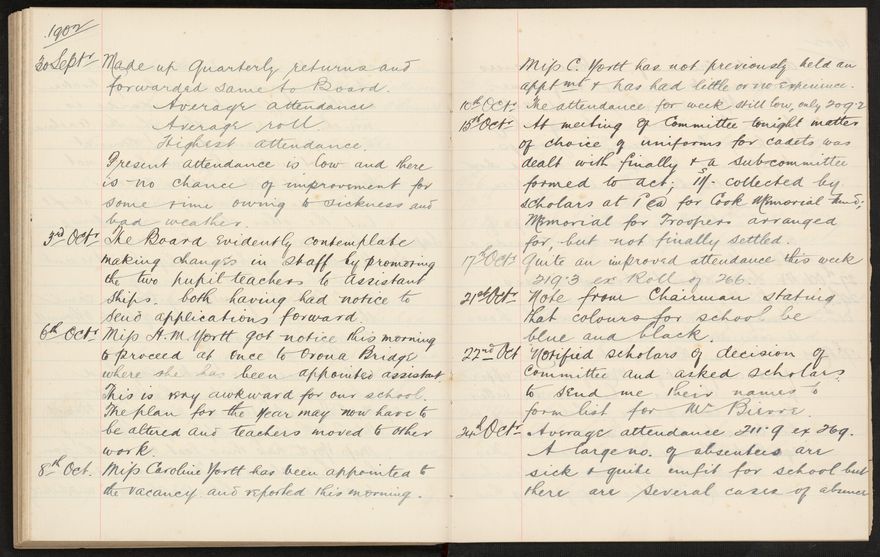 1902
30 Septr Made up Quarterly returns and
forwarded same to Board.
Average attendance
Average roll.
Highest attendance.
Present attendance is low and there
is no chance of improvement for
some time owing to sickness and
bad weather.
3rd Octr The Board evidently contemplate
making changes in staff by promoting
the two pupil teachers to Assistant
ships, both having had notice to
send applications forward
6th Octr Miss H. M. Yortt got notice this morning
to proceed at once to Orona Bridge
where she has been appointed assistant.
This is very awkward for our school.
The plan for the year may now have to
be altered and teachers moved to other
work.
8th Oct. Miss Caroline Yortt has been appointed to
the vacancy and reported this morning.
Miss C. Yortt has not previously held an
apptmt & has had little or no experience.
10th Oct. The attendance for week still low, only 209.2
15th Octr At meeting of Committee tonight matter
of choice of uniforms for cadets was
dealt with finally & a subcommittee
formed to act; collected by
scholars at 1d ea for Cook Memorial fund;
Memorial for Troopers arranged
for, but not finally settled.
17th Octr Quite an improved attendance this week
219.3 ex Roll of 266.
21st Octr Note from Chairman stating
that colours for school be
blue and black.
22nd Oct Notified scholars of decision of
Committee and asked scholars
to send me their names to
form list for Mr
24th Octr Average attendance 211.9 ex 269.
A large no. of absentees are
sick & quite unfit for school but
there are several cases of absence